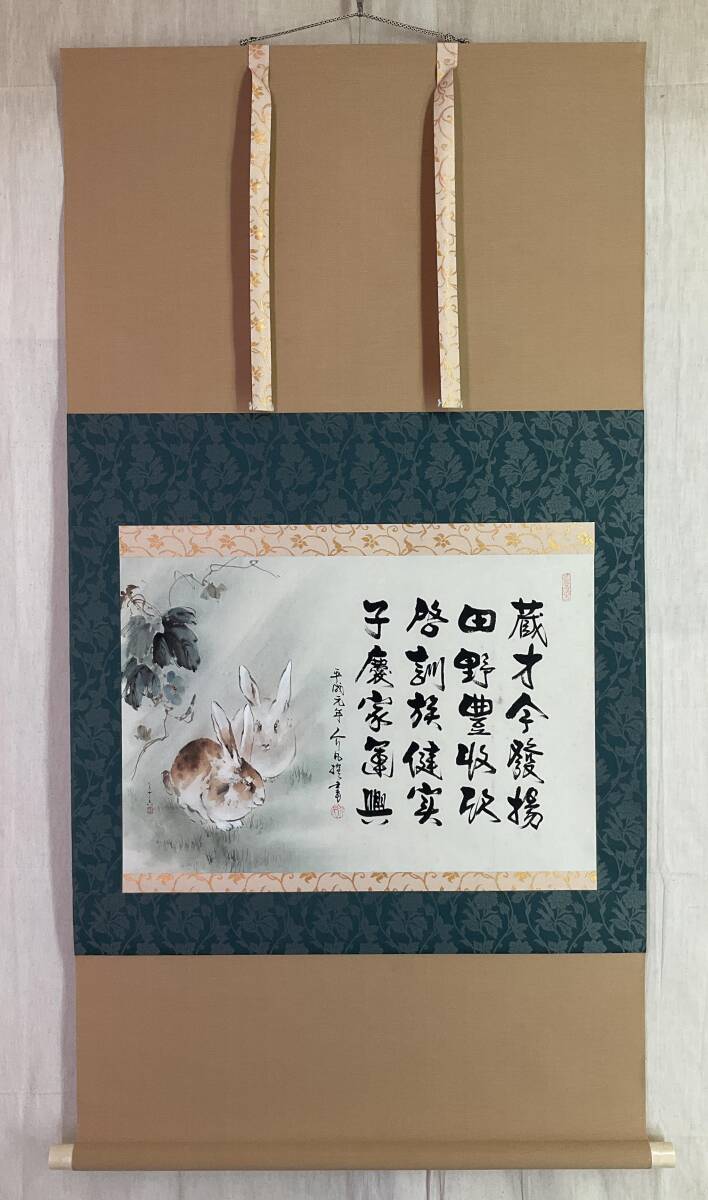 蔵才今發揚
田野豊收
啓訓族健実
子慶家運興
平成元年